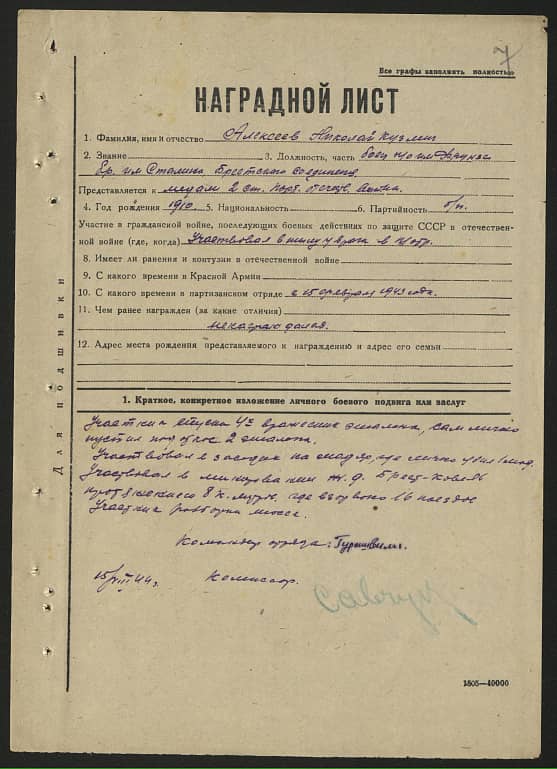 7
Все графы заполнять полностью
НАГРАДНОЙ ЛИСТ
1. Фамилия, имя и отчество Алексеев Николай Кузмич
2. Звание 3. Должность, часть боец п/о им Фрунзе
бр. им Сталина, Брестского соединения
Представляется к медали 2 ст. Парт. отечеств. войны.
4. Год рождения 1910 5. Национальность 6. Партийность б/п.
Участие в гражданской войне, последующих боевых действиях по защите СССР в отечествен-
ной войне (где, когда) Участвовал в тылу у врага в п/отр.
8. Имеет ли ранения и контузии в отечественной войне
9. С какого времени в Красной Армии
10. С какого времени в партизанском отряде с 15 февраля 1943 года.
11. Чем ранее награжден (за какие отличия)
ненаграждался.
12. Адрес места рождения представляемого к награждению и адрес его семьи
Для подшивки
1. Краткое, конкретное изложение личного боевого подвига или заслуг
Участник спуска 4х вражеских эшелона, сам лично
пустил под откос 2 эшелона.
Участвовал в засаде на мадяр, где лично убил 1 мад.
Участвовал в минировании ж.д. Брест-Ковель
протяжением 8 к. метр. где взорвано 16 поездов
Участник разгорома моста.
Командир отряда:
15/VIII 44 г. Комиссар.
1805—40000